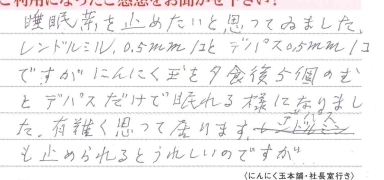 ご利用になったご感想をお聞かせ下さい!
睡眠薬を止めたいと思ってゐました。
レンドルミル、0.5mm1コとデパス0.5mm1コ
ですがにんにく玉を夕食後5個のむ
とデパスだけで眠れる様になりまし
た。有難く思って居ります。デパス
も止められるとうれしいのですが
(にんにく玉本舗・社長室行き)